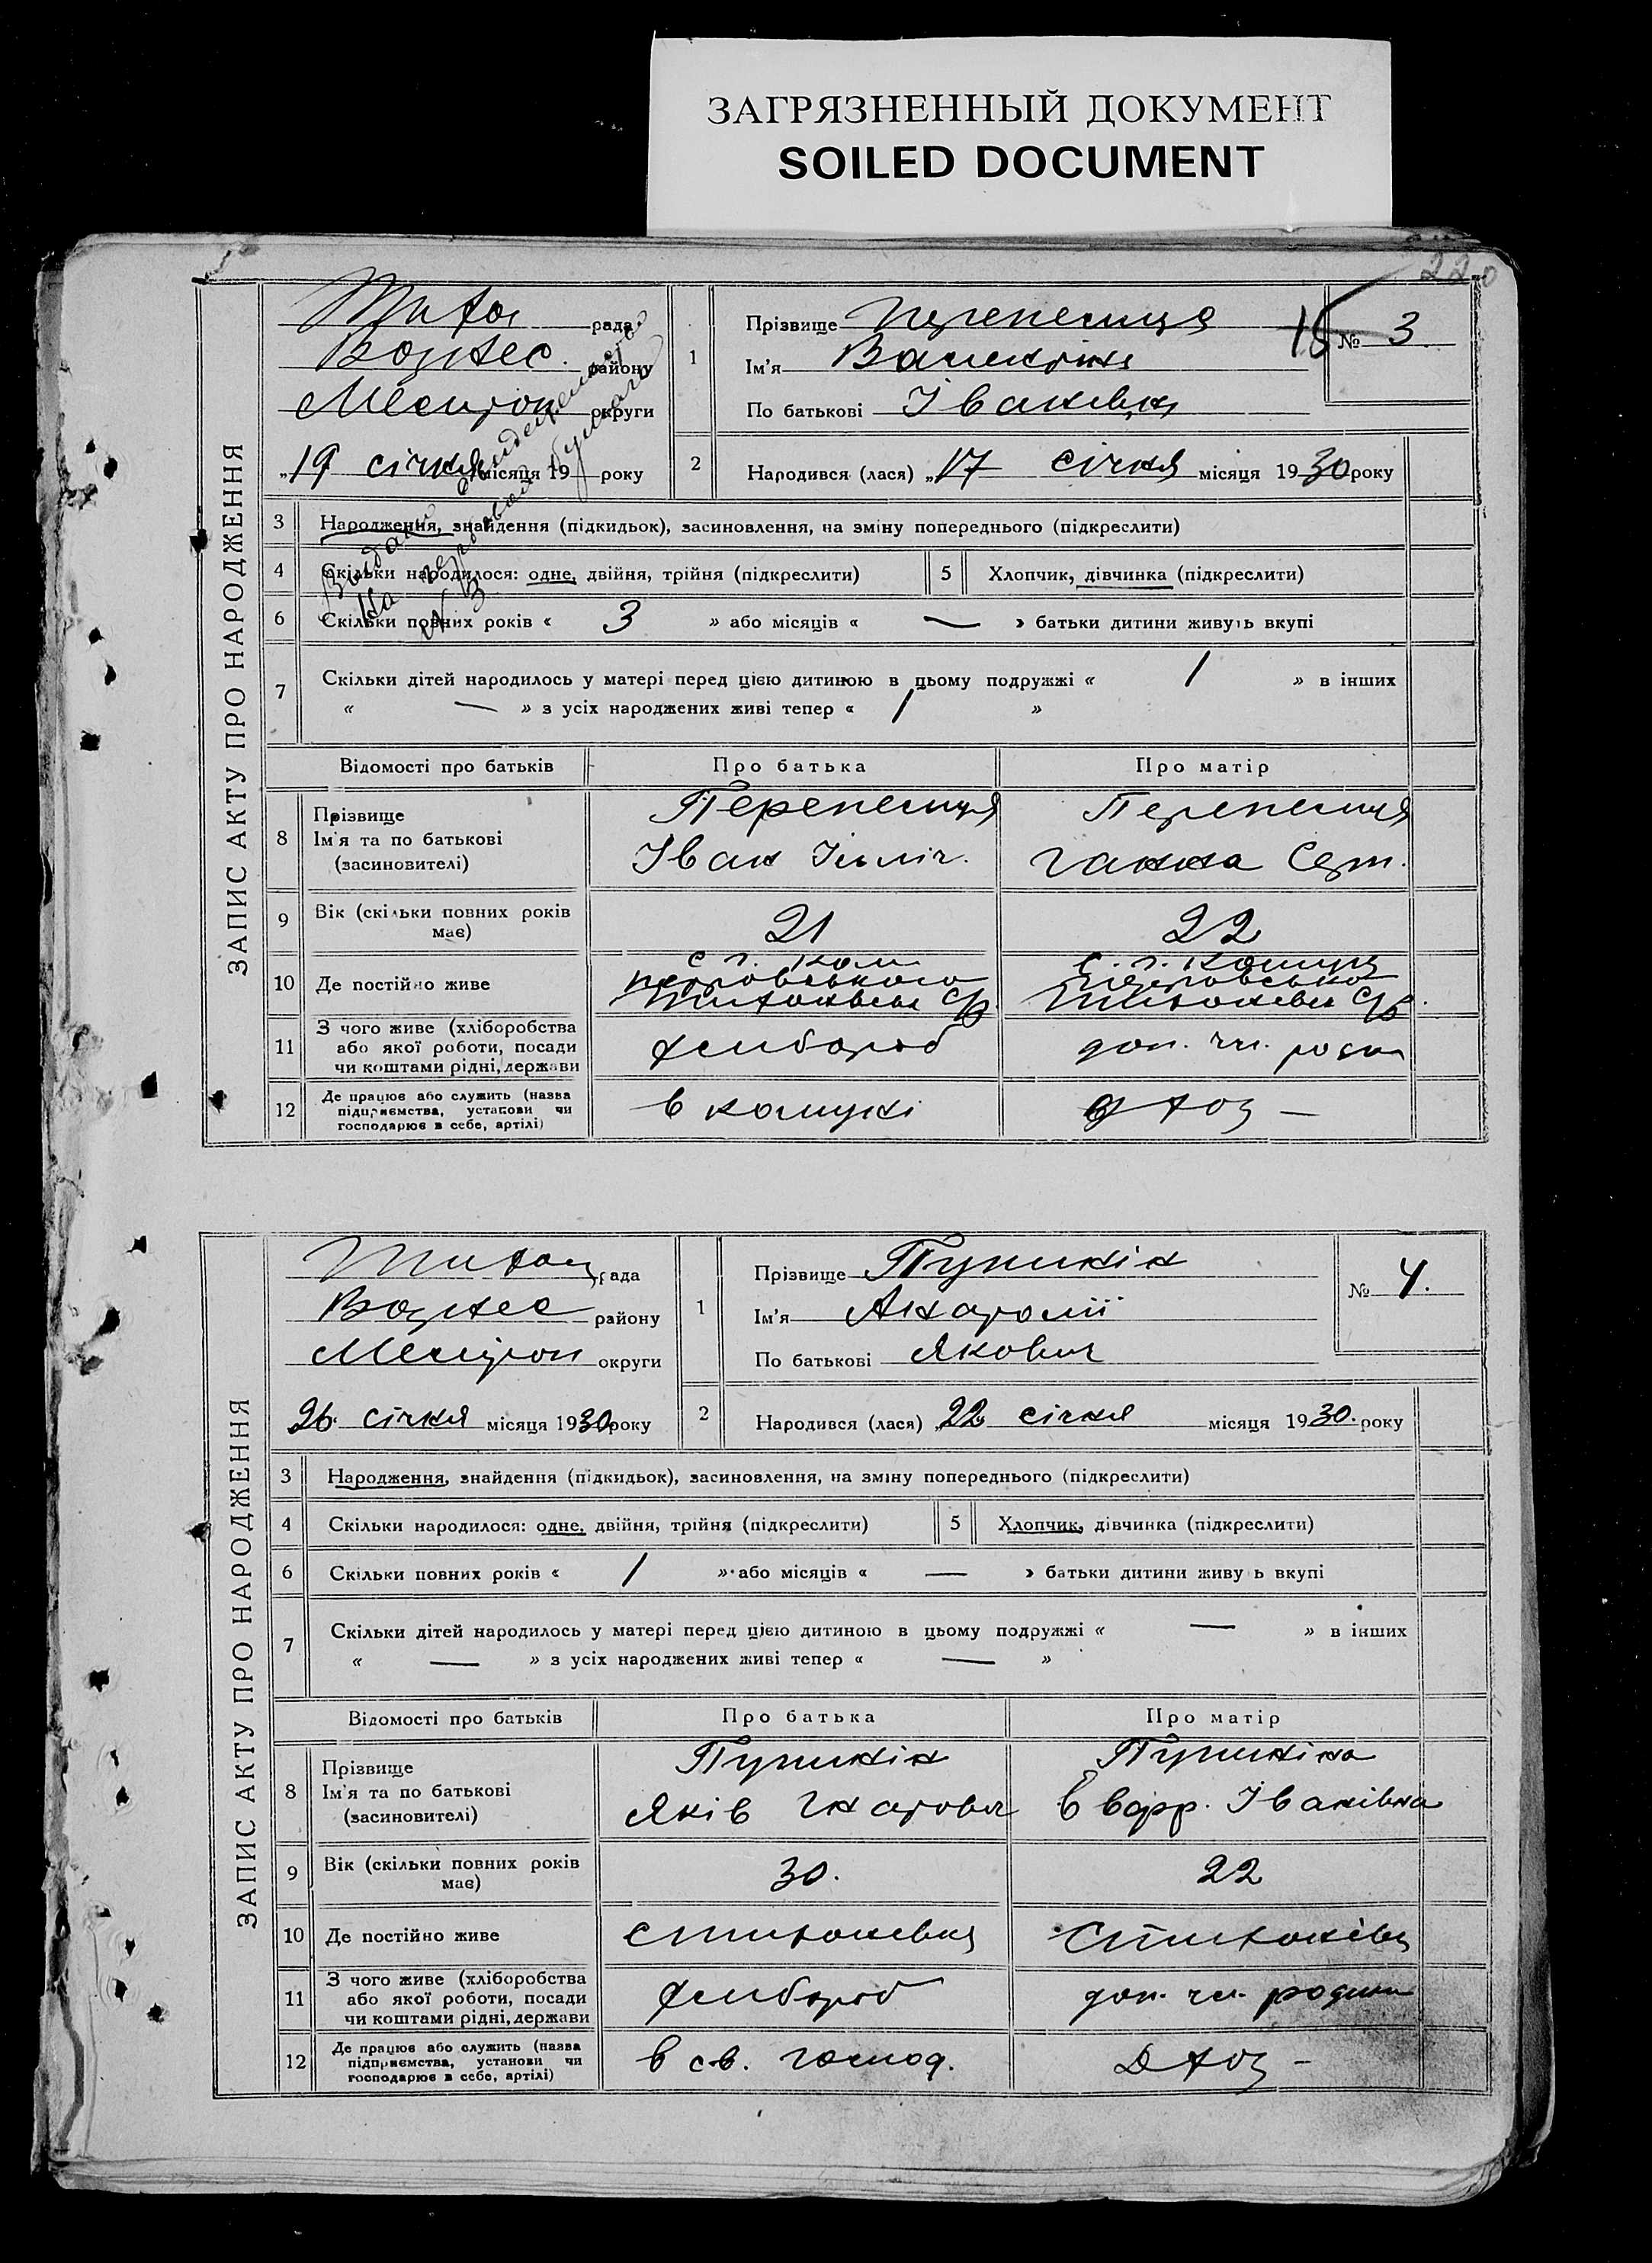 ЗАГРЯЗНЕННЫЙ ДОКУМЕНТ
SOILED DOCUMENT
220
ЗАПИС АКТУ ПРО НАРОДЖЕННЯ
рада
району
округи
„19 січня місяця 19 року
1
Прізвище Перепелиця
Ім'я Валентина
По батькові Іванівна
15
№ 3
2
Народився (лася) „17 січня місяця 1930 року
3 Народження, знайдення (підкидьок), засиновлення, на зміну попереднього (підкреслити)
4 Скільки народилося: одне, двійня, трійня (підкреслити)
5 Хлопчик, дівчинка (підкреслити)
6 Скільки повних років « 3 » або місяців « — » батьки дитини живуть вкупі
7 Скільки дітей народилось у матері перед цією дитиною в цьому подружжі « 1 » в інших
« — » з усіх народжених живі тепер « 1 »
Відомості про батьків Про батька Про матір
8 Прізвище
Ім'я та по батькові
(засиновителі)
Перепелиця
Іван Ілліч.
Перепелиця
Ганна
9 Вік (скільки повних років
має)
21
22
10 Де постійно живе
с. г. ком
Петровського
с. г. комуна
Петровського
11 З чого живе (хліборобства
або якої роботи, посади
чи коштами рідні, держави
хлибороб
доп. чл. родин
12 Де працює або служить (назва
підприємства, установи чи
господарює в себе, артілі)
в комуні
ЗАПИС АКТУ ПРО НАРОДЖЕННЯ
рада
району
округи
26 січня місяця 1930 року
1
Прізвище Пушкін
Ім'я Анатолії
По батькові Якович
№ 4.
2
Народився (лася) „22 січня місяця 1930. року
3 Народження, знайдення (підкидьок), засиновлення, на зміну попереднього (підкреслити)
4 Скільки народилося: одне, двійня, трійня (підкреслити)
5 Хлопчик, дівчинка (підкреслити)
6 Скільки повних років « 1 » або місяців « — » батьки дитини живу ь вкупі
7 Скільки дітей народилось у матері перед цією дитиною в цьому подружжі « — » в інших
« — » з усіх народжених живі тепер « — »
Відомості про батьків Про батька Про матір
8 Прізвище
Ім'я та по батькові
(засиновителі)
Пушкін
Яків Гнатович
Пушкіна
Іванівна
9 Вік (скільки повних років
має)
30.
22
10 Де постійно живе
11 З чого живе (хліборобства
або якої роботи, посади
чи коштами рідні, держави
хлибороб
доп. чл. родини
12 Де працює або служить (назва
підприємства, установи чи
господарює в себе, артілі)
в св. господ.